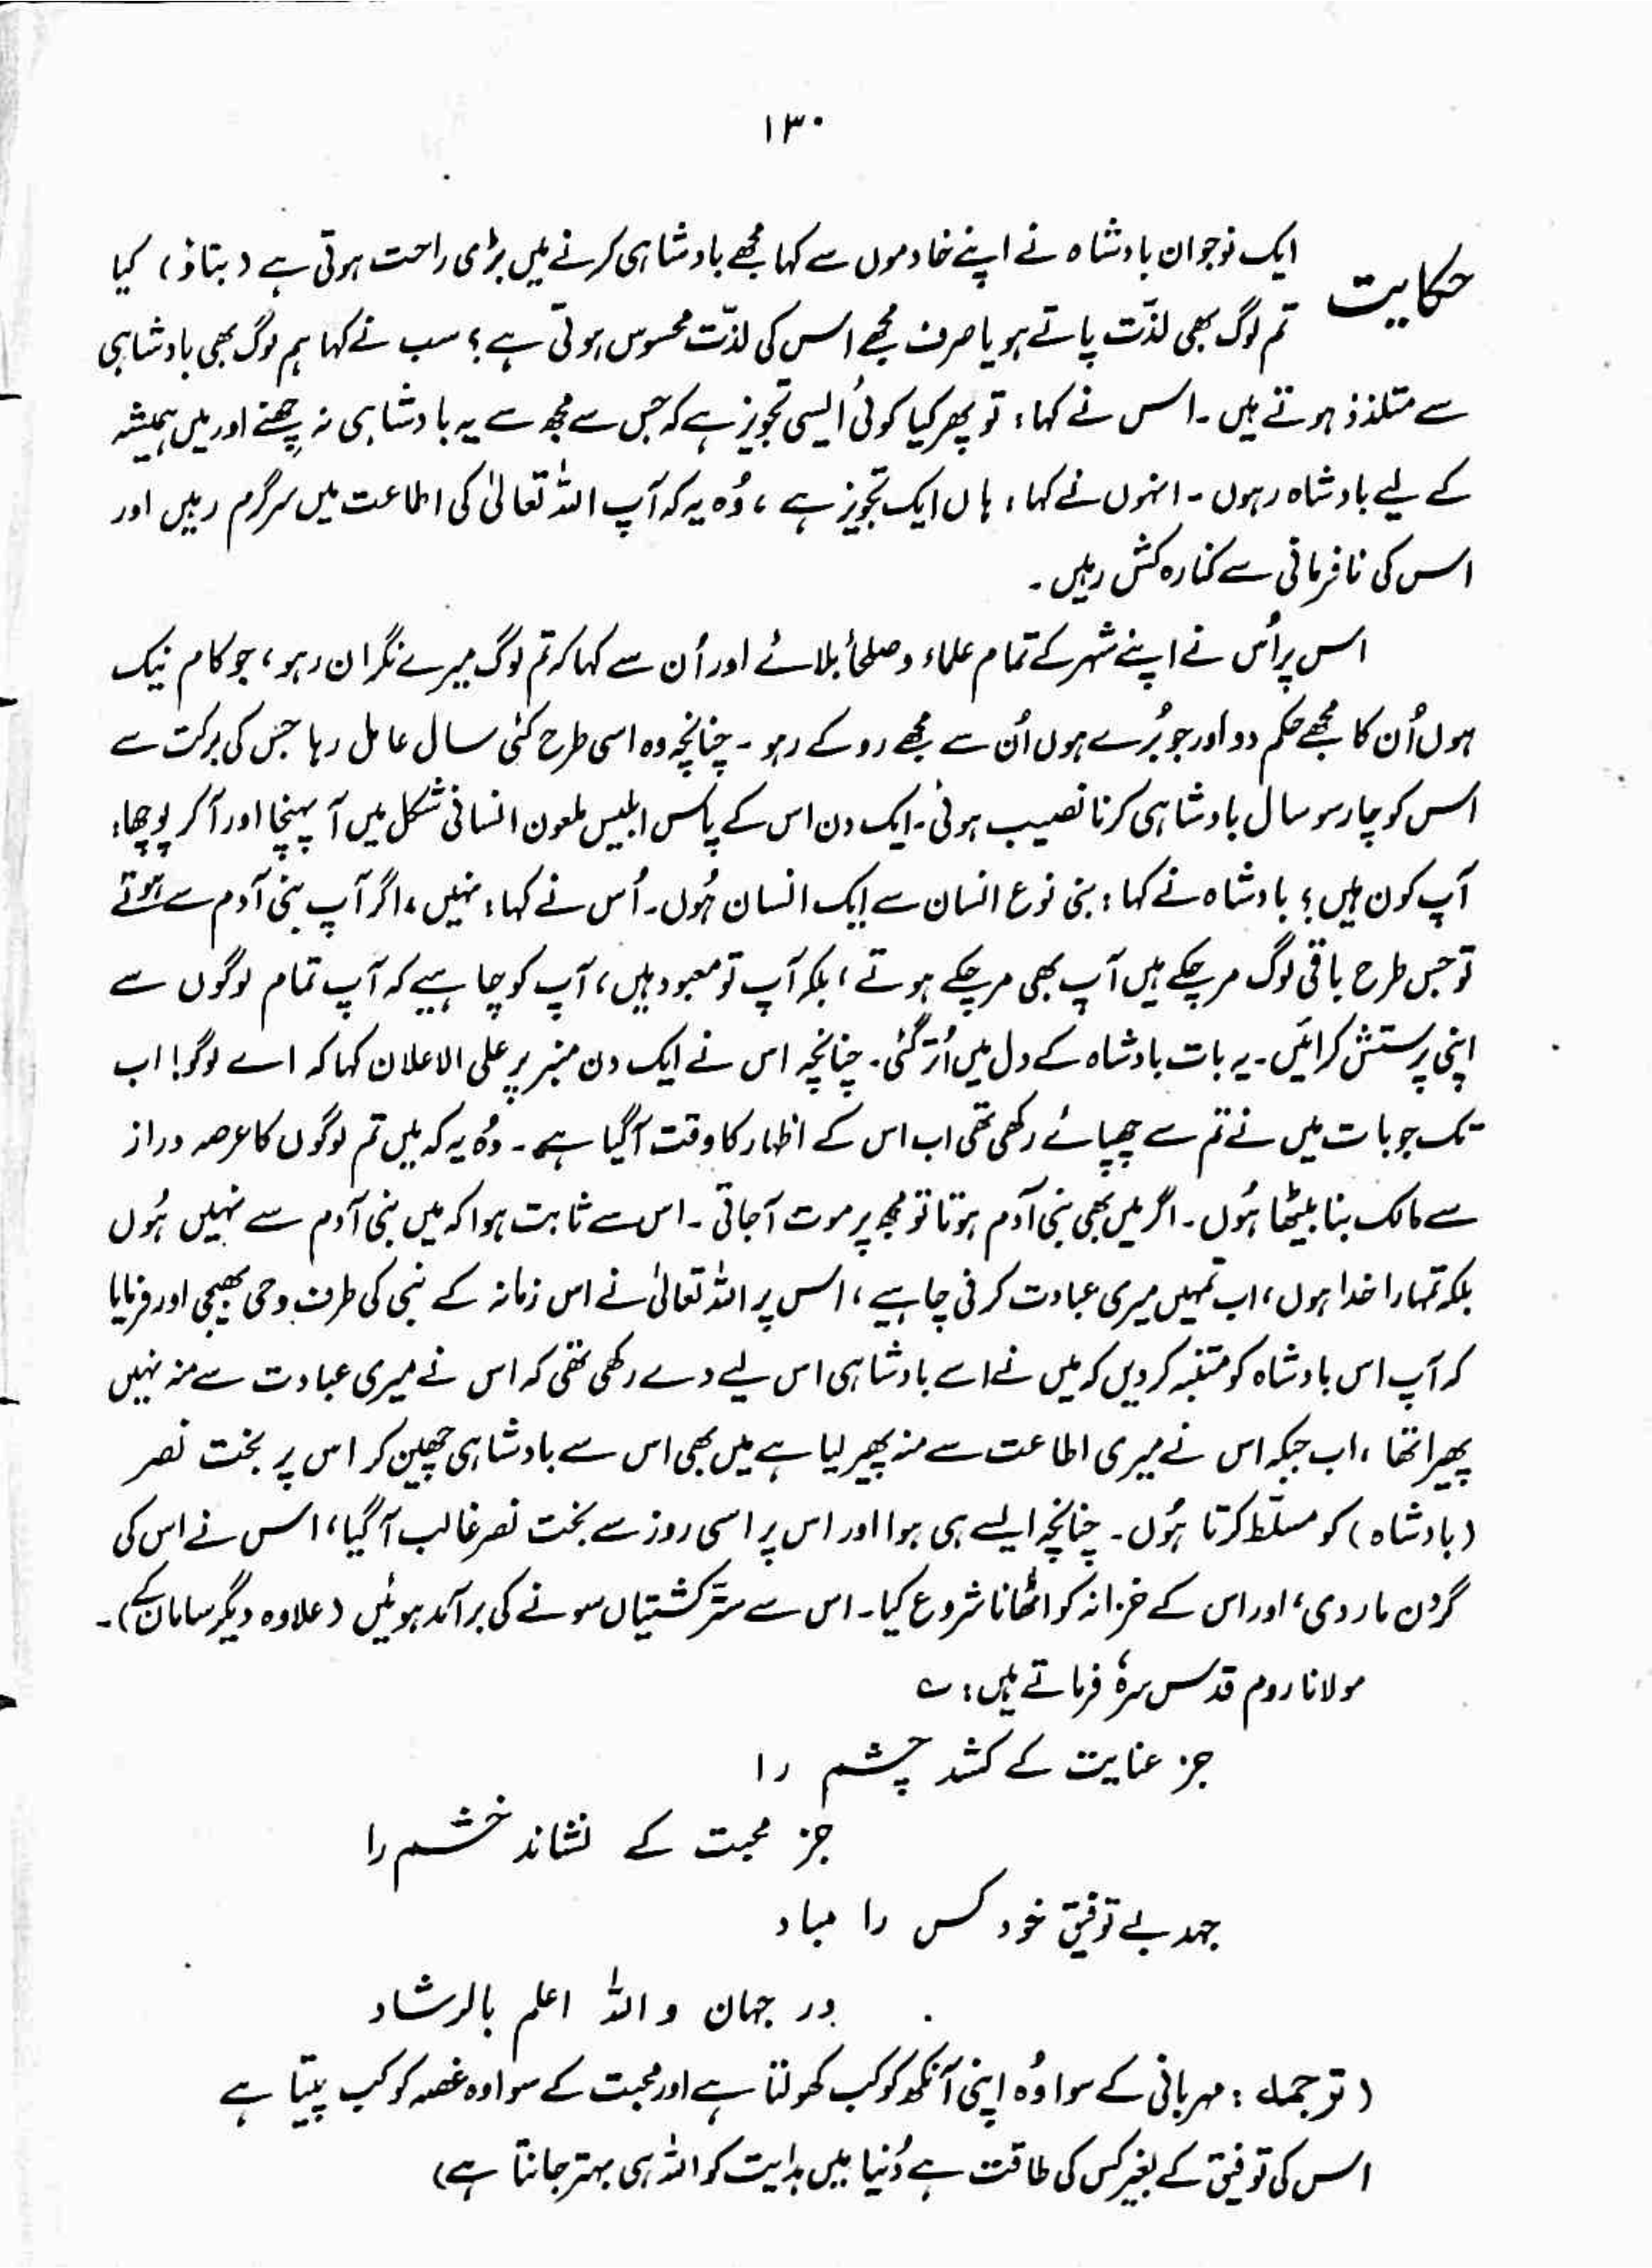 ۱۳۰
حکایت
ایک نوجوان بادشاہ نے اپنے خادموں سے کہا مجھے بادشاہی کرنے میں بڑی راحت ہوتی ہے (بتاؤ) کیا
تم لوگ بھی لذّت پاتے ہو یا صرف مجھے اس کی لذّت محسوس ہوتی ہے؟ سب نے کہا ہم لوگ بھی بادشاہی
سے متلذذ ہوتے ہیں۔ اس نے کہا، تو پھر کیا کوئی ایسی تجویز ہے کہ جس سے مجھ سے یہ بادشاہی نہ چھنے اور میں ہمیشہ
کے لیے بادشاہ رہوں۔ انہوں نے کہا، ہاں ایک تجویز ہے، وُہ یہ کہ آپ اللہ تعالیٰ کی اطاعت میں سرگرم رہیں اور
اس کی نافرمانی سے کنارہ کش رہیں۔
اس پر اُس نے اپنے شہر کے تمام علماء و صلحأ بلائے اور اُن سے کہا کہ تم لوگ میرے نگران رہو، جو کام نیک
ہوں اُن کا مجھے حکم دو اور جو بُرے ہوں اُن سے مجھے روکے رہو۔ چنانچہ وہ اسی طرح کئی سال عامل رہا جس کی برکت سے
اس کو چار سو سال بادشاہی کرنا نصیب ہوئی۔ ایک دن اس کے پاس ابلیس ملعون انسانی شکل میں آ پہنچا اور آ کر پوچھا:
آپ کون ہیں؟ بادشاہ نے کہا: بنی نوع انسان سے ایک انسان ہُوں۔ اُس نے کہا: نہیں، اگر آپ بنی آدم سے ہوتے
تو جس طرح باقی لوگ مر چکے ہیں آپ بھی مر چکے ہوتے، بلکہ آپ تو معبود ہیں، آپ کو چاہیے کہ آپ تمام لوگوں سے
اپنی پرستش کرائیں۔ یہ بات بادشاہ کے دل میں اُتر گئی۔ چنانچہ اس نے ایک دن منبر پر علی الاعلان کہا کہ اے لوگو! اب
تک جو بات میں نے تم سے چھپائے رکھی تھی اب اس کے اظہار کا وقت آگیا ہے۔ وُہ یہ کہ میں تم لوگوں کا عرصہ دراز
سے مالک بنا بیٹھا ہُوں۔ اگر میں بھی بنی آدم ہوتا تو مجھ پر موت آجاتی۔ اس سے ثابت ہوا کہ میں بنی آدم سے نہیں ہُوں
بلکہ تمہارا خدا ہوں، اب تمہیں میری عبادت کرنی چاہیے، اس پر اللہ تعالیٰ نے اس زمانہ کے نبی کی طرف وحی بھیجی اور فرمایا
کہ آپ اس بادشاہ کو متنبہ کر دیں کہ میں نے اسے بادشاہی اس لیے دے رکھی تھی کہ اس نے میری عبادت سے منہ نہیں
پھیرا تھا، اب جبکہ اس نے میری اطاعت سے منہ پھیر لیا ہے میں بھی اس سے بادشاہی چھین کر اس پر بخت نصر
(بادشاہ) کو مسلّط کرتا ہُوں۔ چنانچہ ایسے ہی ہوا اور اس پر اسی روز سے بخت نصر غالب آ گیا، اس نے اس کی
گردن مار دی، اور اس کے خزانہ کو اٹھانا شروع کیا۔ اس سے ستّر کشتیاں سونے کی برآمد ہوئیں (علاوہ دیگر سامان کے)۔
مولانا روم قدس سرہٗ فرماتے ہیں: ؎
جز عنایت کے کشد چشم را
جز محبت کے نشاند خشم را
جہد بے توفیق خود کس را مباد
در جہان و اللہ اعلم بالرشاد
(ترجمہ: مہربانی کے سوا وُہ اپنی آنکھ کو کب کھولتا ہے اور محبت کے سوا وہ غصہ کو کب پیتا ہے
اس کی توفیق کے بغیر کس کی طاقت ہے دُنیا میں ہدایت کو اللہ ہی بہتر جانتا ہے)